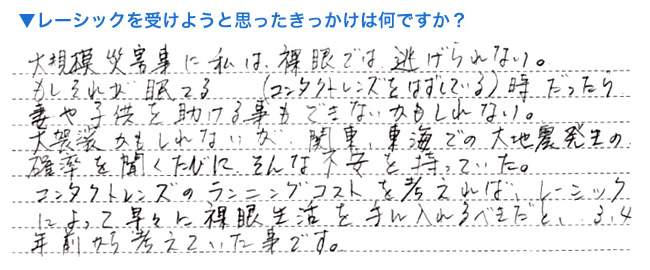 ▼レーシックを受けようと思ったきっかけは何ですか？
大規模災害事に私は、裸眼では逃げられない。
もしそれが眠てる（コンタクトレンズをはずしている）時だったら
妻や子供を助ける事もできないかもしれない。
大袈裟かもしれないが、関東、東海での大地震発生の
確率を聞くたびにそんな不安を持っていた。
コンタクトレンズのランニングコストを考えれば、レーシック
によって早々に裸眼生活を手に入れるべきだと、3,4
年前から考えていた事です。